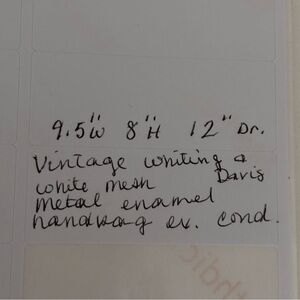 9.5"W 8"H 12" Dr.
Vintage whiting &
white mesh Davis
metal enamel
handbag ex. cond.